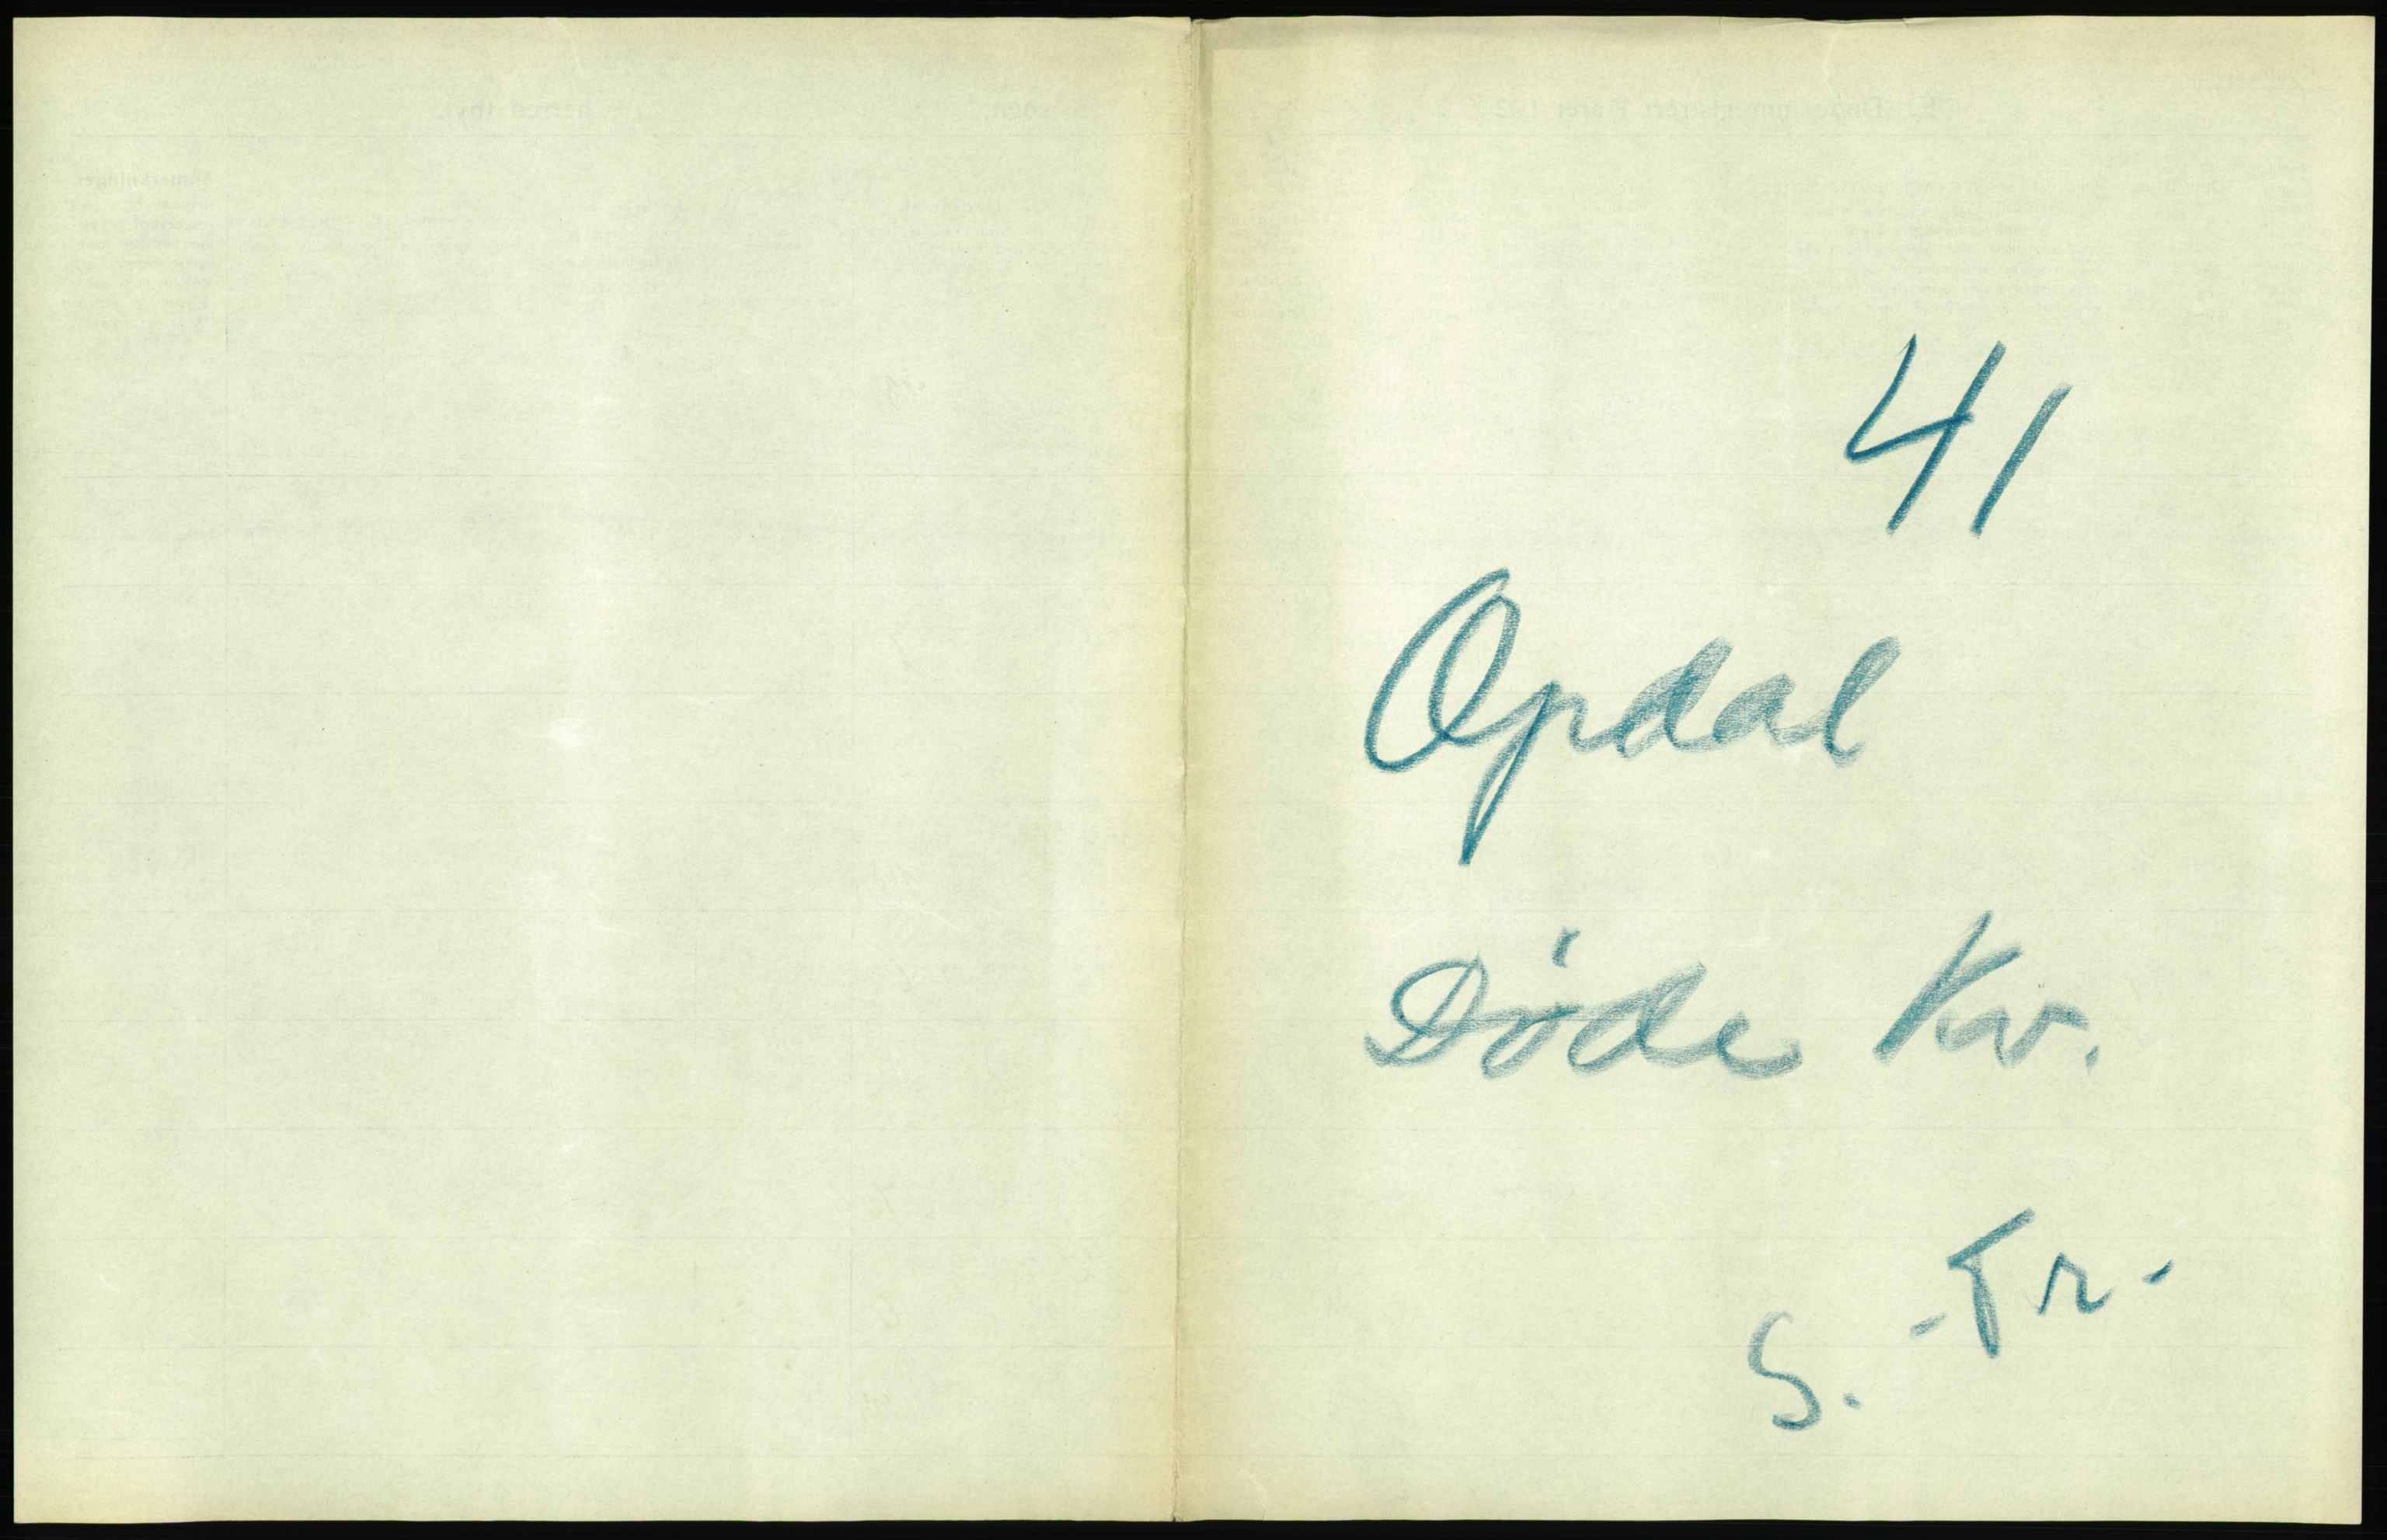 41
Opdal
Døde Kv.
S.-Tr.